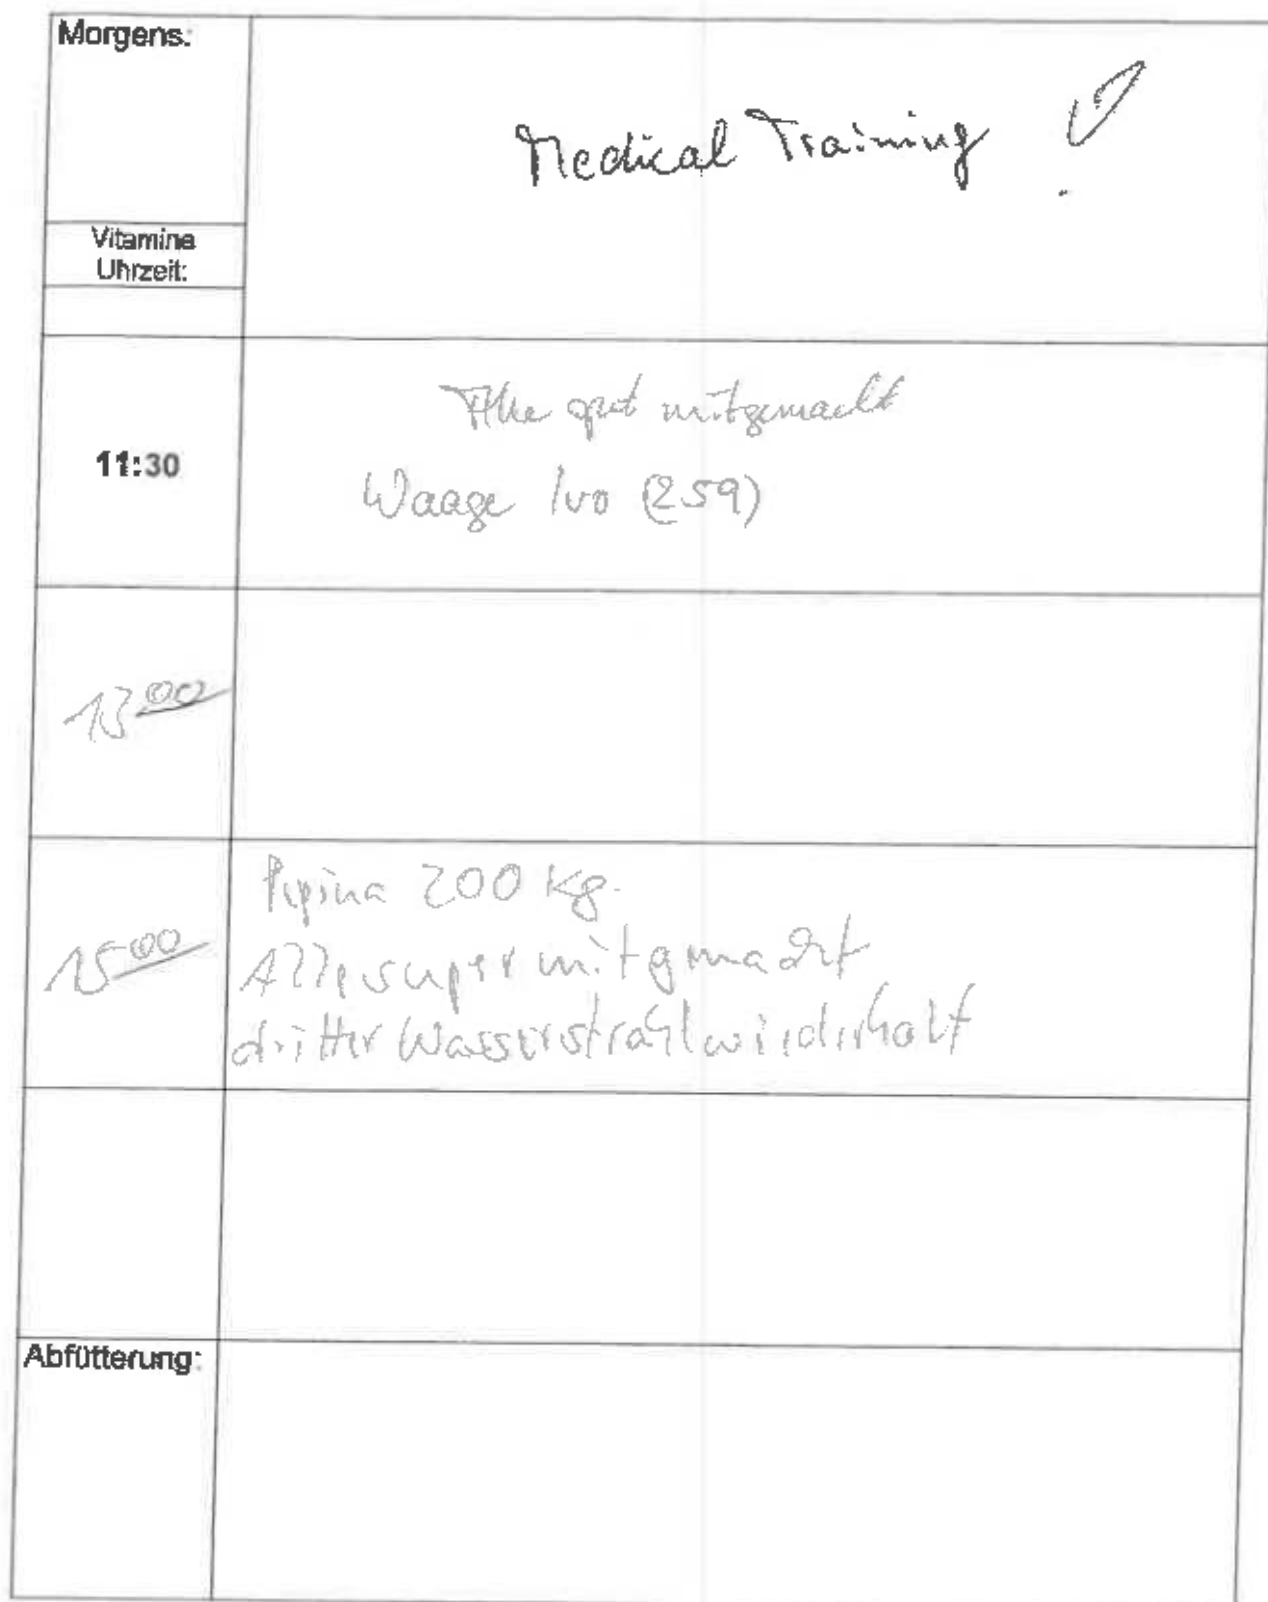 Morgens:
Medical Training !
Vitamine
Uhrzeit:
11:30
Alle gut mitgemacht
Waage Ivo (259)
13 00
15 00
Pepina 200 kg.
Alle super mitgemacht
dritter Wasserstrahl wiederholt
Abfütterung: